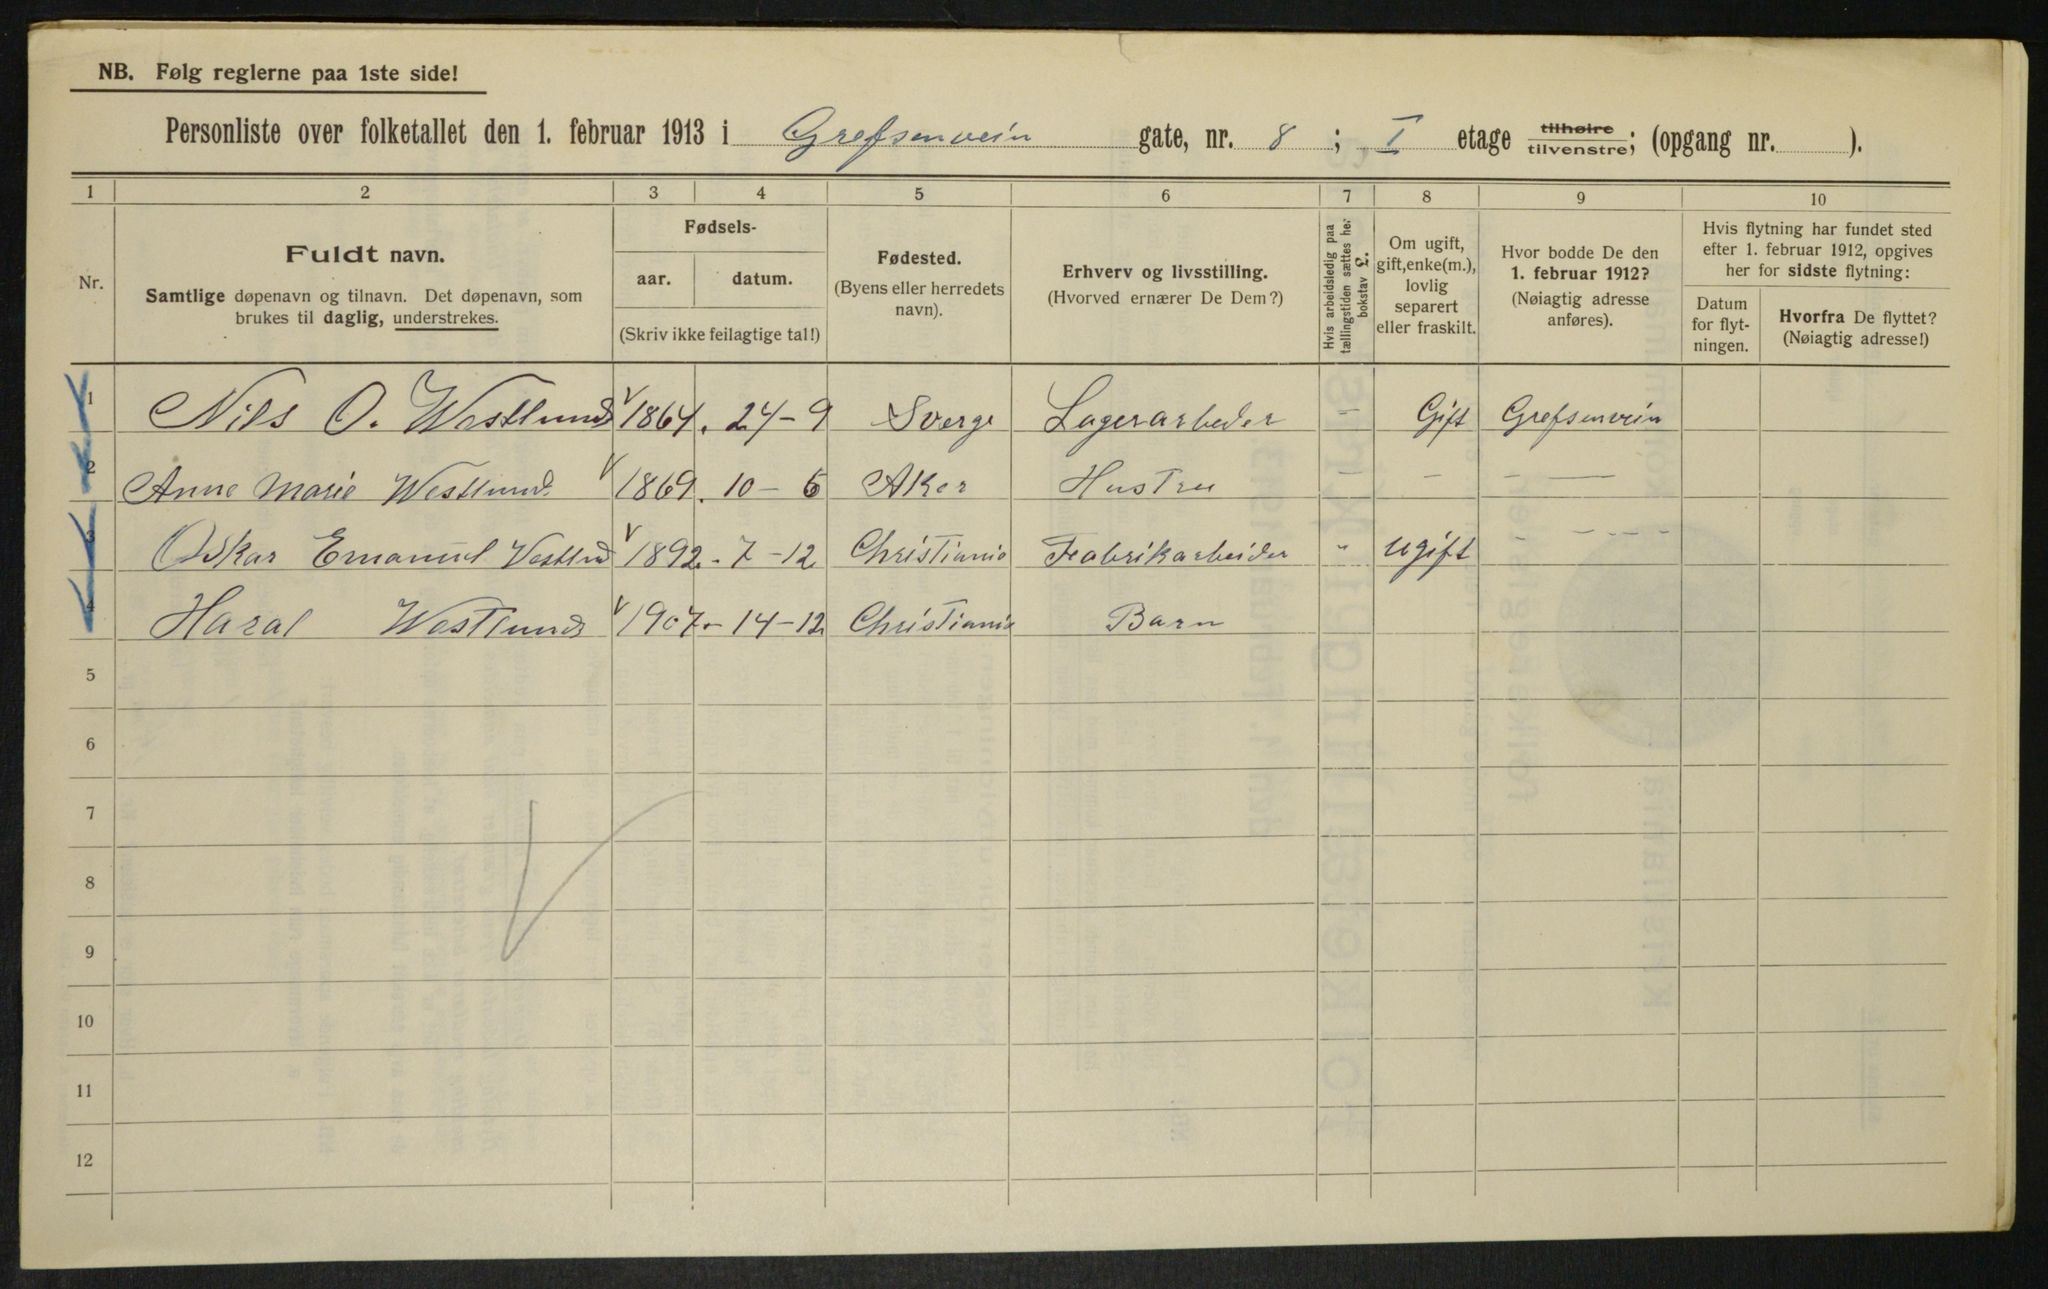 NB. Følg reglerne paa 1ste side!
Personliste over folketallet den 1. februar 1913 i Grefsenvein gate, nr. 8 ; I etage tilhøire tilvenstre; (opgang nr. ).
1 2 3 4 5 6 7 8 9 10
Nr.
Fuldt navn.
Samtlige døpenavn og tilnavn. Det døpenavn, som
brukes til daglig, understrekes.
Fødsels-
aar. datum.
(Skriv ikke feilagtige tal!)
Fødested.
(Byens eller herredets
navn).
Erhverv og livsstilling.
(Hvorved ernærer De Dem?)
Hvis arbeidsledig paa
tællingstiden sættes her
bokstav L.
Om ugift,
gift, enke(m.),
lovlig
separert
eller fraskilt.
Hvor bodde De den
1. februar 1912?
(Nøiagtig adresse
anføres).
Hvis flytning har fundet sted
efter 1. februar 1912, opgives
her for sidste flytning:
Datum
for flyt-
ningen.
Hvorfra De flyttet?
(Nøiagtig adresse!)
1 Nils O. Westlund 1864. 24-9 Sverge Lagerarbeder - Gift Grefsenvein
2 Anne Marie Westlund 1869. 10-6 Aker Hustru - - - -
3 Oskar Emanuel Vestlund 1892.-7-12 Christiania Fabrikarbeider " ugift - - - - -
4 Haral Westlund 1907.-14-12 Christiania Barn
5
6
7
8
9
10
11
12